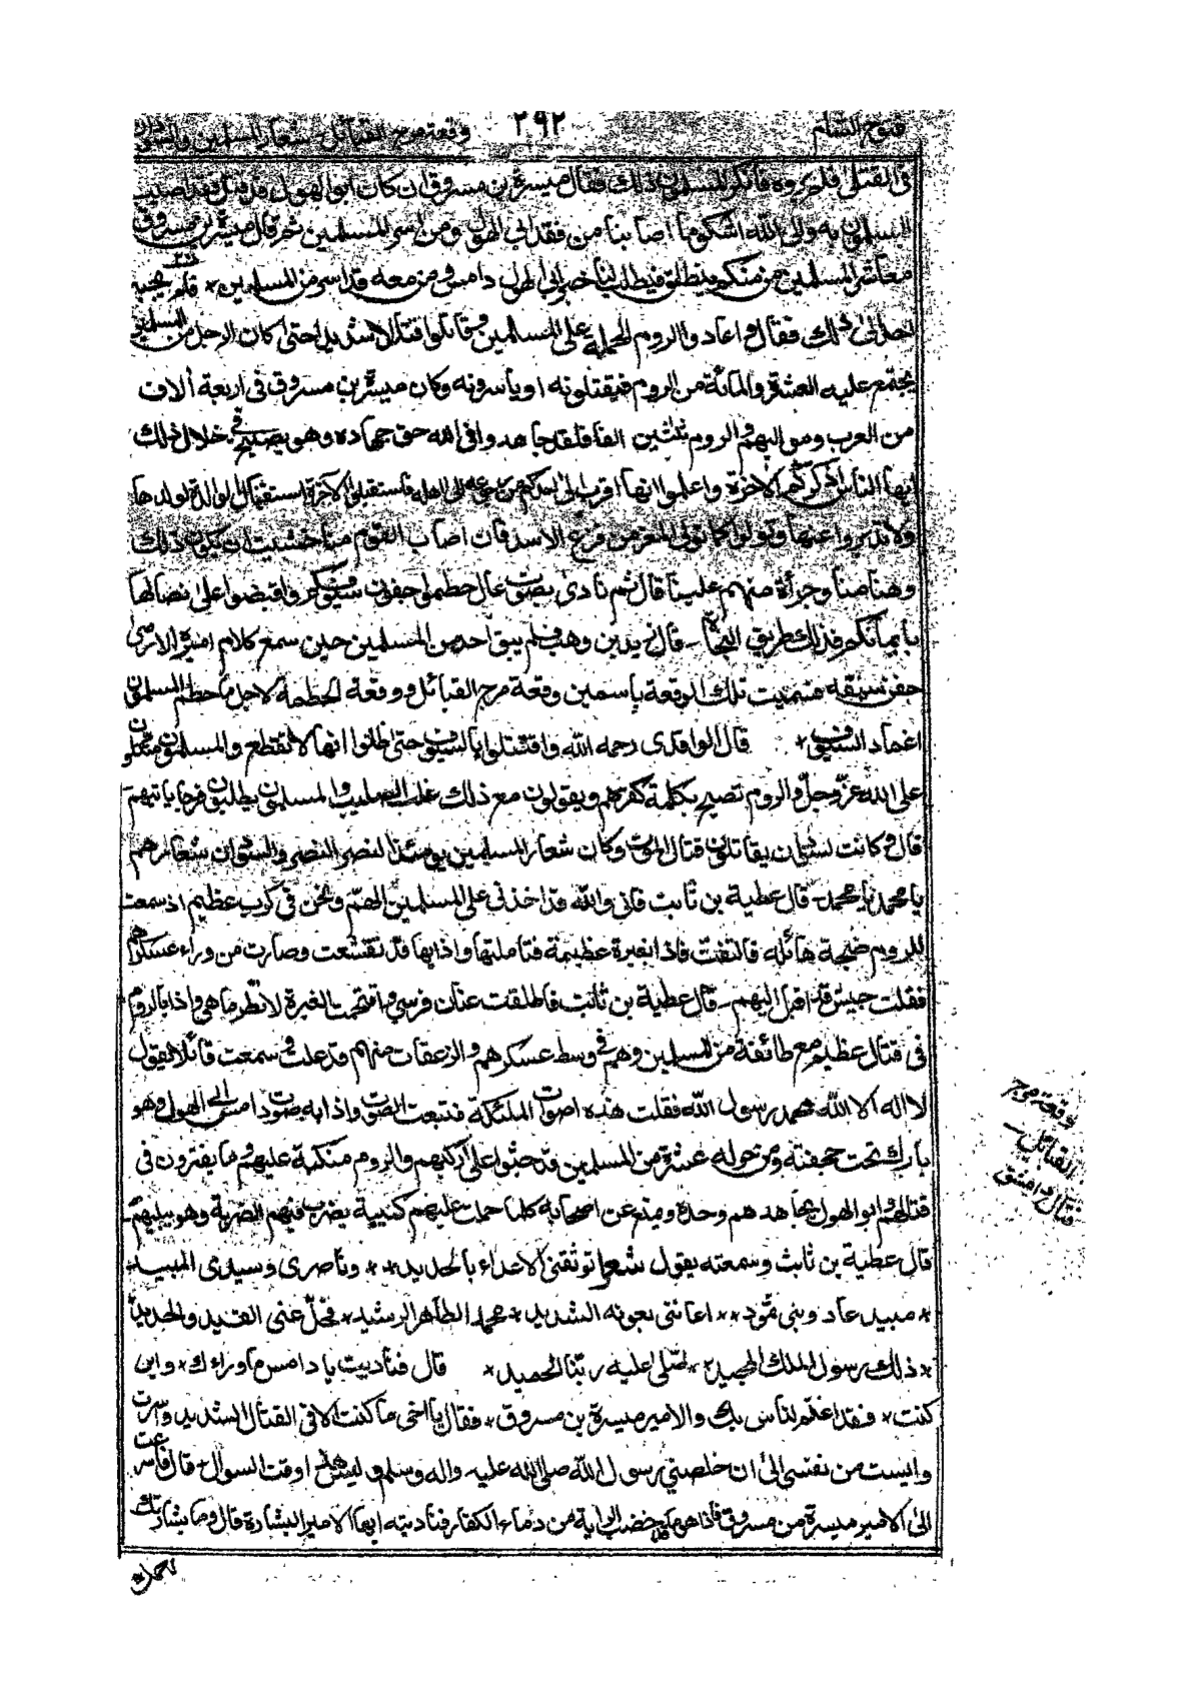 فتوح الشام ٢٩٢ وقعة مرج القبائل شعار المسلمين والنسوان
فى القتلى فلم يروه فأنكر المسلمون ذلك فقال ميسرة بن مسروق ان كان ابو الهول قد قتل فقد اصيب
المسلمون به والى الله اشكو ما اصابنا من فقد ابى الهول ومن اسر المسلمين ثم قال ميسرة بن مسروق
معاشر المسلمين من منكم ينطلق فيطلب لنا خبر ابى الهول دامس ومن معه قد اسر من المسلمين * فلم يجبه
احد الى ذلك فقال واعاد والروم الحملة على المسلمين وقاتلوا قتالا شديدا حتى كان الرجل من المسلمين
يجتمع عليه العشرة والمائة من الروم فيقتلونه او يأسرونه وكان ميسرة بن مسروق فى اربعة ألاف
من العرب ومواليهم والروم ثلثين الفا فلقد جاهدوا فى الله حق جهاده وهو يصيح فى خلال ذلك
ايها الناس اذكركم الآخرة واعلموا انها اقرب الى احدكم من الى اهله فاستقبلوا الآخرة استقبال الوالدة لولدها
ولا تدبروا عنها وتولوا كما تولى الحمر من فزع الاسد فان اصاب القوم منا خشيت ان يكون ذلك
وهنا منا وجرأة منهم علينا قال ثم نادى بصوت عال حطموا جفون سيوفكم واقبضوا على نصالها
بأيمانكم فذلك طريق النجاة - قال زيد بن وهب فلم يبق احد من المسلمين حين سمع كلام اميره الا رمى
جفن سيفه فسميت تلك الوقعة باسمين وقعة مرج القبائل ووقعة الحطمة لاجل ما حطم المسلمون
اغماد السيوف * قال الواقدى رحمه الله واقتتلوا بالسيوف حتى ظنوا انها لا تقطع والمسلمون متكلون
على الله عز وجل والروم تصيح بكلمة كفرهم ويقولون مع ذلك غلب الصليب والمسلمون يطلبون فرجا يأتيهم
قال وكانت نسوان يقاتلون قتال الموت وكان شعار المسلمين يومئذ النصر النصر والنسوان شعارهم
يا محمد يا محمد - قال عطية بن ثابت فانى والله قد اخذنى على المسلمين الهم ونحن فى كرب عظيم اذ سمعت
للروم ضجة هائلة فالتفت فاذا بغبرة عظيمة فتاملتها واذا بها قد تقشعت وصارت من وراء عسكرهم
فقلت جيش قد اقبل اليهم - قال عطية بن ثابت فاطلقت عنان فرسى واقتحمت الغبرة لانظر ما هى واذا بالروم
فى قتال عظيم مع طائفة من المسلمين وهم فى وسط عسكرهم والزعقات منهم قد علت وسمعت قائلا يقول
لا اله الا الله محمد رسول الله فقلت هذه اصوات الملئكة فتبعت الصوت واذا به صوت دامس ابى الهول وهو
بارك تحت حجفته ومن حوله عشرة من المسلمين قد جثوا على ركبهم والروم منكبة عليهم وما يفترون فى
قتالهم وابو الهول يجاهدهم وحده ويمنع عن اصحابه كلما حملت عليهم كتيبة يضرب فيهم الضربة وهو يبليهم
قال عطية بن ثابت وسمعته يقول شعرا توثقنى الاعداء بالحديد * * وناصرى وسيدى المبيد
* مبيد عاد وبنى ثمود * * اعاننى بعونه الشديد * محمد الطاهر الرشيد * فحل عنى القيد والحديد
* ذلك رسول الملك المجيد * * صلى عليه ربنا الحميد * قال فناديت يا دامس ما وراءك * واين
كنت * فقد اغتم الناس بك والامير ميسرة بن مسروق * فقال يا اخى ما كنت الا فى القتال الشديد واسرت
وايست من نفسى الى ان خلصنى رسول الله صلى الله عليه واله وسلم وليس هذا وقت السوال - قال فاسرعت
الى الامير ميسرة بن مسروق فاذا هو قد خضب الراية من دماء الكفار فناديته ايها الامير البشارة قال وما بشارتك
وقعة مرج
القبائل -
قتال دامس
يرحمك